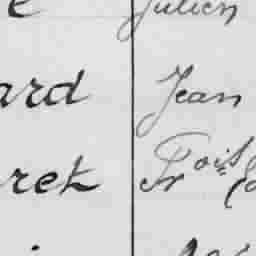 e Julien
ard Jean
ret Frois